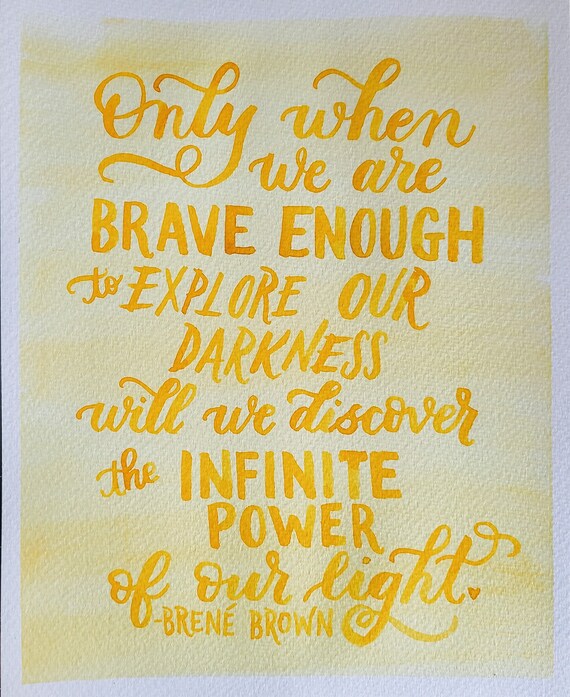 Only when
we are
BRAVE ENOUGH
to EXPLORE OUR
DARKNESS
will we discover
the INFINITE
POWER
of our light.
-BRENÉ BROWN